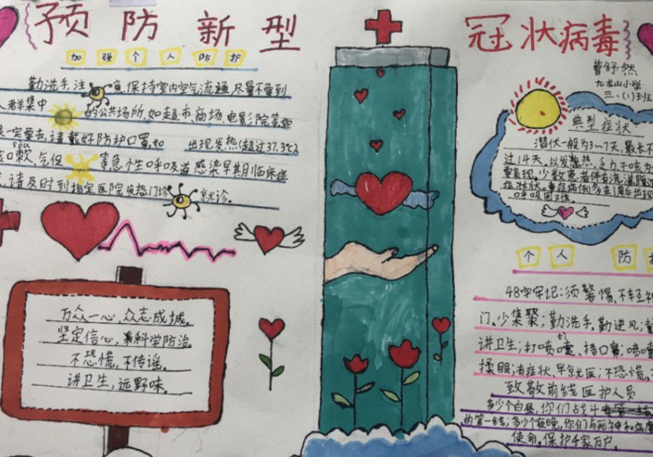 预防新型
冠状病毒
曹舒然
九龙山小学
三、(1)班
加强个人防护
勤洗手,注意,保持室内空气流通,尽量不要到
人群集中的公共场所,如超市,商场,电影院等如
一定要去,请戴好防护口罩,如出现发热(超过37.3℃
咳嗽,气促等急性呼吸道感染早期临床症
请及时到指定医院发热门诊就诊。
万众一心,众志成城。
坚定信心,科学防治。
不恐慌,不传谣。
讲卫生,远野味。
典型症状
潜伏一般为3~7天,最长不
过14天,以发热,乏力,干咳为
个人防护
48字牢记:须警惕,不
门。少集聚;勤洗手,勤通风;
讲卫生;打喷嚏,捂口鼻;喷嚏
揉眼;有症状,早就医;不恐慌,不
致敬前线医护人员
多少个白昼,你们战斗
的第一线;多少个夜晚,你们与死神和病
使命。保护千家万户。